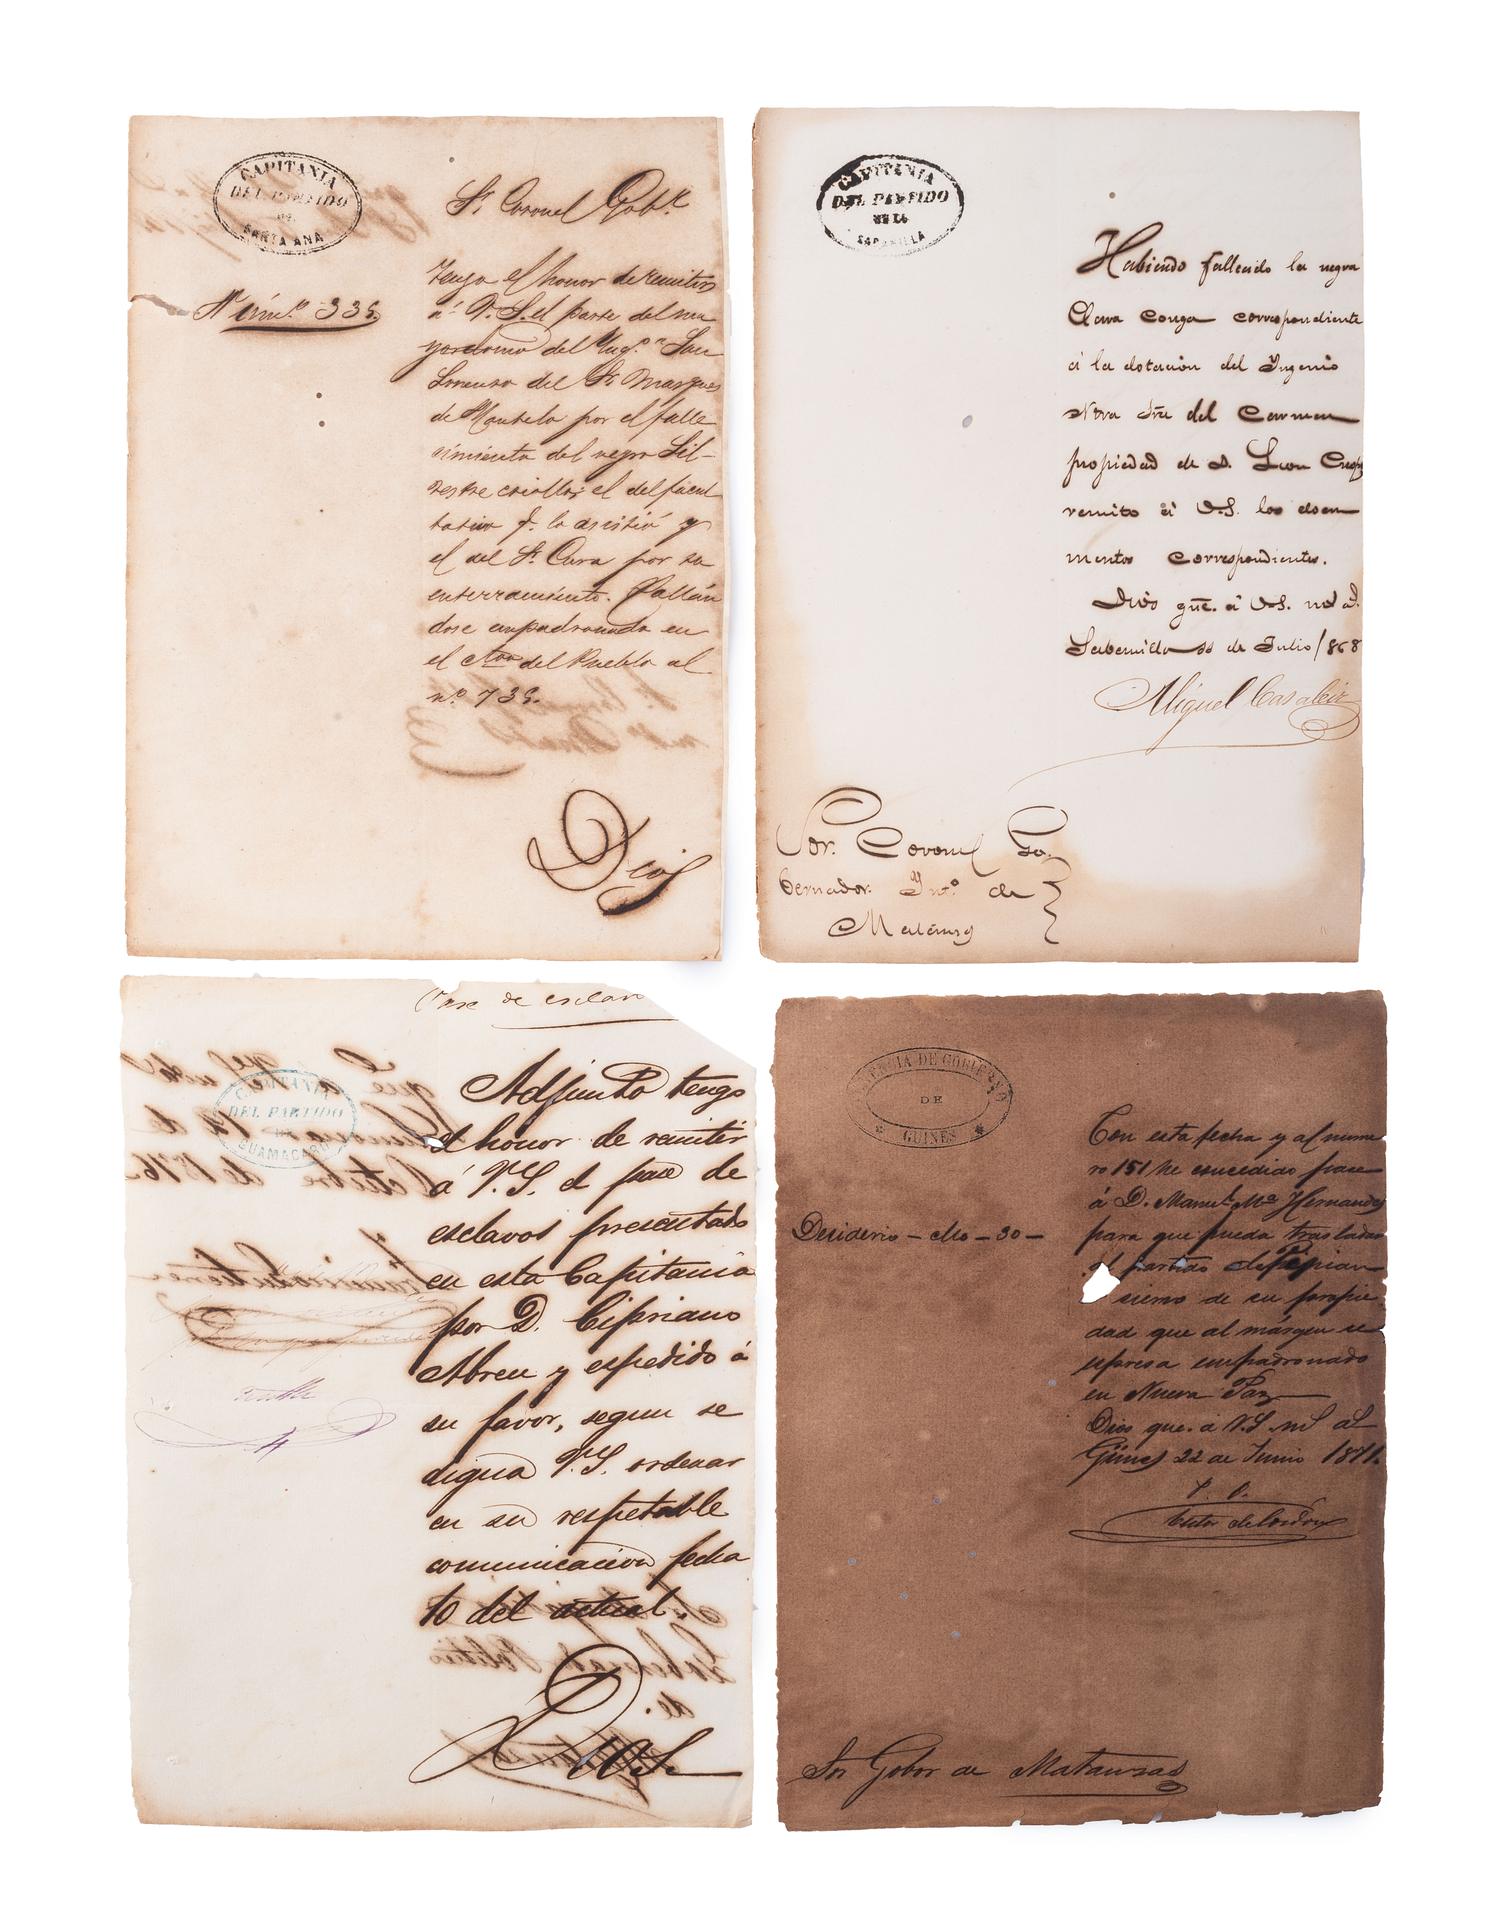 CAPITANIA
DEL PARTIDO
DE
SANTA ANA
Sr. Coronel Gobr.
Núm.o 335.
Tengo el honor de remitir
á V.S. el parte del ma
yordomo del Yng.o San
Lorenso del Sr Marques
de Montelo por el falle
simiento del negro Sil-
vestre criollo; el del facul
tativo q. lo asistió y
el del Sr. Cura por su
enterramiento. Hallan
dose empadronado en
el del Pueblo al
no. 735.
Dios
CAPITANIA
DEL PARTIDO
DE LA
SABANILLA
Habiendo fallecido la negra
Clara conga correspondiente
á la dotacion del Yngenio
Ntra Sra del Carmen
propiedad de D. Leon Crespo
remito á V.S. los docu
mentos correspondientes.
Dios gue. á V.S. ms as.
Sabanilla de Julio /868
Miguel
Sor. Coronel Go
bernador Ynto. de
Matanzas
Pase de esclavo
CAPITANIA
DEL PARTIDO
DE
GUAMACARO
Adjunto tengo
el honor de remitir
á V.S. el pase de
esclavos presentado
en esta Capitania
por D. Cipriano
Abreu y espedido á
su favor, segun se
digna V.S. ordenar
en su respetable
comunicacion fecha
10 del actual.
Dios
TENENCIA DE GOBIERNO
DE
GUINES
Con esta fecha y al nume
ro 151 he concedido pase
á D. Manuel Ma Hernandez
para que pueda trasladar
al partido de Cipian
siervo de su propie
dad que al márgen se
espresa empadronado
en Nueva Paz
Dios gue. a V.S. ms as
Güines 22 de Junio 1871.
Desiderio – cllo – 30 –
Y. O.
Victor de
Sor Gobor de Matanzas